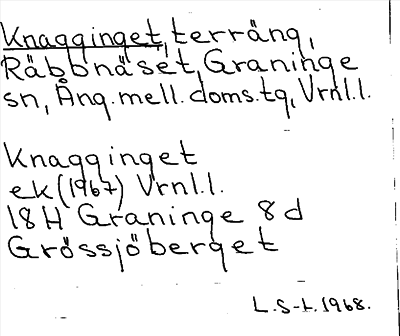 Knagginget, terräng,
Räbbnäset, Graninge
sn, Ång. mell. doms.tg, Vrnl.l.
Knagginget
ek (1967) Vrnl.l.
18H Graninge 8d
Grössjöberget
L.S-t. 1968.